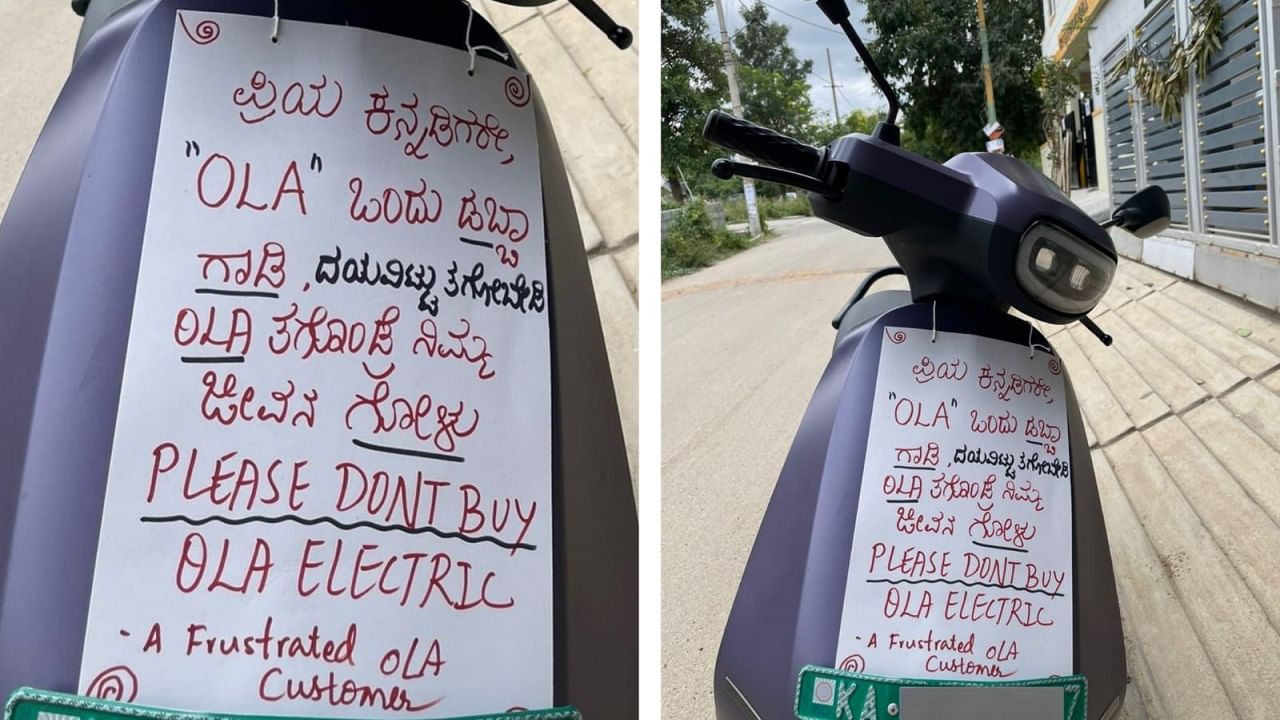 ಪ್ರಿಯ ಕನ್ನಡಿಗರೇ,
"OLA" ಒಂದು ಡಬ್ಬಾ
ಗಾಡಿ , ದಯವಿಟ್ಟು ತಗೋಬೇಡಿ
OLA ತಗೊಂಡ್ರೆ ನಿಮ್ಮ
ಜೀವನ ಗೋಳು
PLEASE DONT BUY
OLA ELECTRIC
- A Frustrated OLA
Customer
ಪ್ರಿಯ ಕನ್ನಡಿಗರೇ,
"OLA" ಒಂದು ಡಬ್ಬಾ
ಗಾಡಿ , ದಯವಿಟ್ಟು ತಗೋಬೇಡಿ
OLA ತಗೊಂಡ್ರೆ ನಿಮ್ಮ
ಜೀವನ ಗೋಳು
PLEASE DONT BUY
OLA ELECTRIC
- A Frustrated OLA
Customer
KA 7